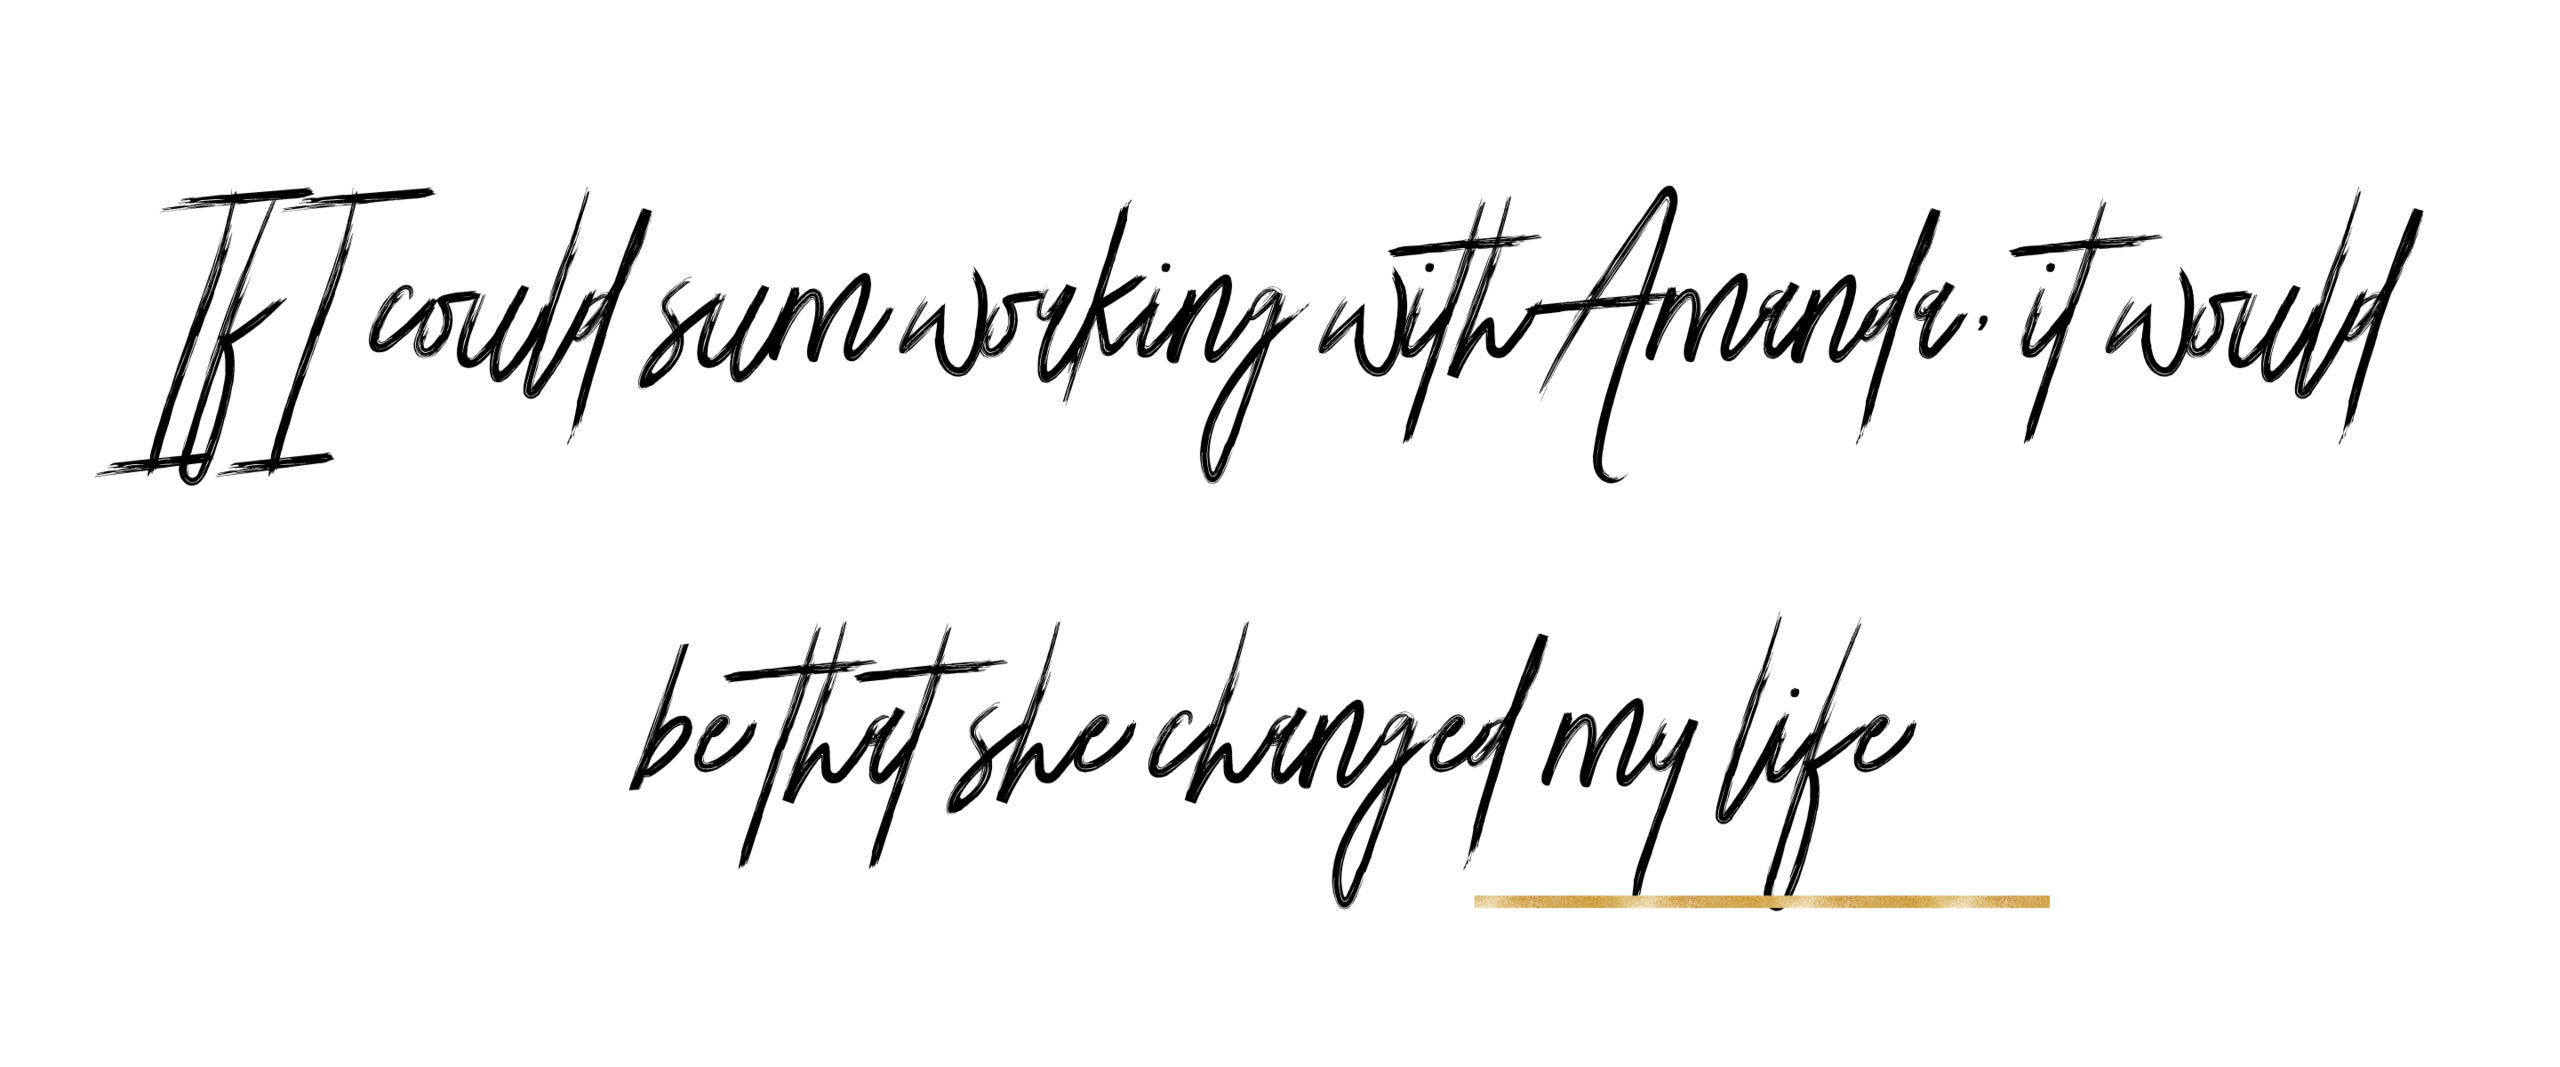 If I could sum working with Amanda, it would
be that she changed my life